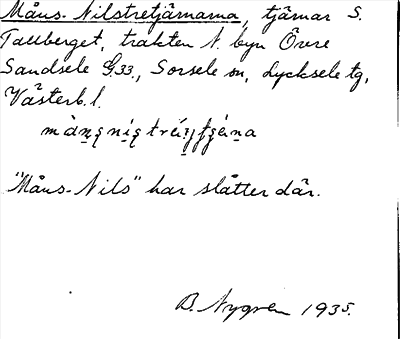 Måns-Nilstretjärnarna, tjärnar S.
Tallberget, trakten N. byn Övre
Sandsele G33., Sorsele sn, Lycksele tg,
Västerb. l.
"Måns-Nils" har slåtter där.
B. Nygren 1935.